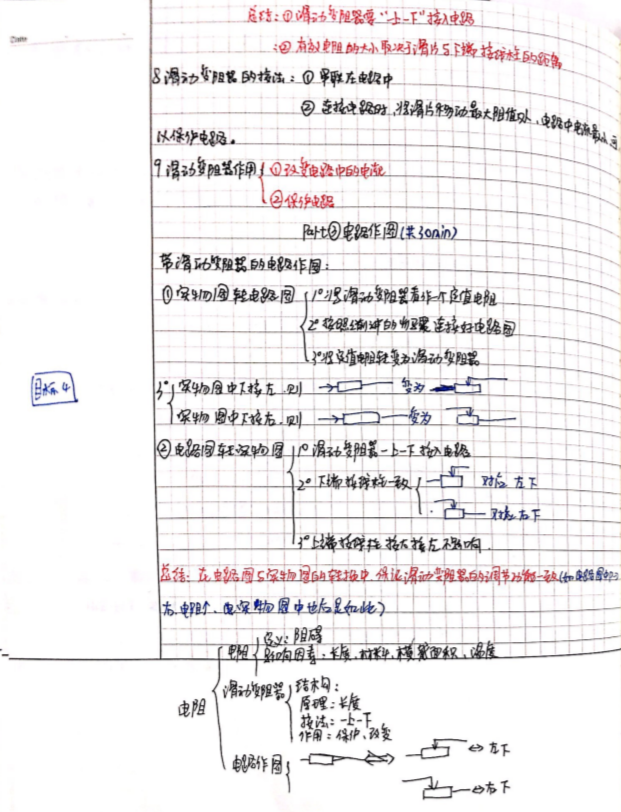 Date
总结:①滑动变阻器要"一上一下"接入电路
②有效电阻的大小取决于滑片与下端接线柱的距离
8.滑动变阻器的接法:①串联在电路中
②连接电路时,将滑片移动最大阻值处,电路中电流最小
以保护电路。
9.滑动变阻器作用 ①改变电路中的电流
②保护电路
Part③电路作图(共30min)
带滑动变阻器的电路作图:
①实物图转电路图 1°将滑动变阻器看作一个定值电阻
2°按照的位置连接好电路图
3°将定值电阻转变为滑动变阻器
目标4
3° 实物图中下接左,则 变为
实物图中下接右,则 变为
②电路图转实物图 1°滑动变阻器一上一下接入电路
2°下端接线柱一致 对应左下
对应右下
3°上端接线柱接右接左不影响.
总结:在电路图与实物图的转换中,保证滑动变阻器的调节功能一致(如电路图
右,电阻↑,实物图中也应是如此)
电阻
电阻 定义:阻碍
影响因素:长度、材料、横截面积、温度
滑动变阻器 结构:
原理:长度
接法:一上一下
作用:保护、改变
电路作图 ⇔左下
⇔右下